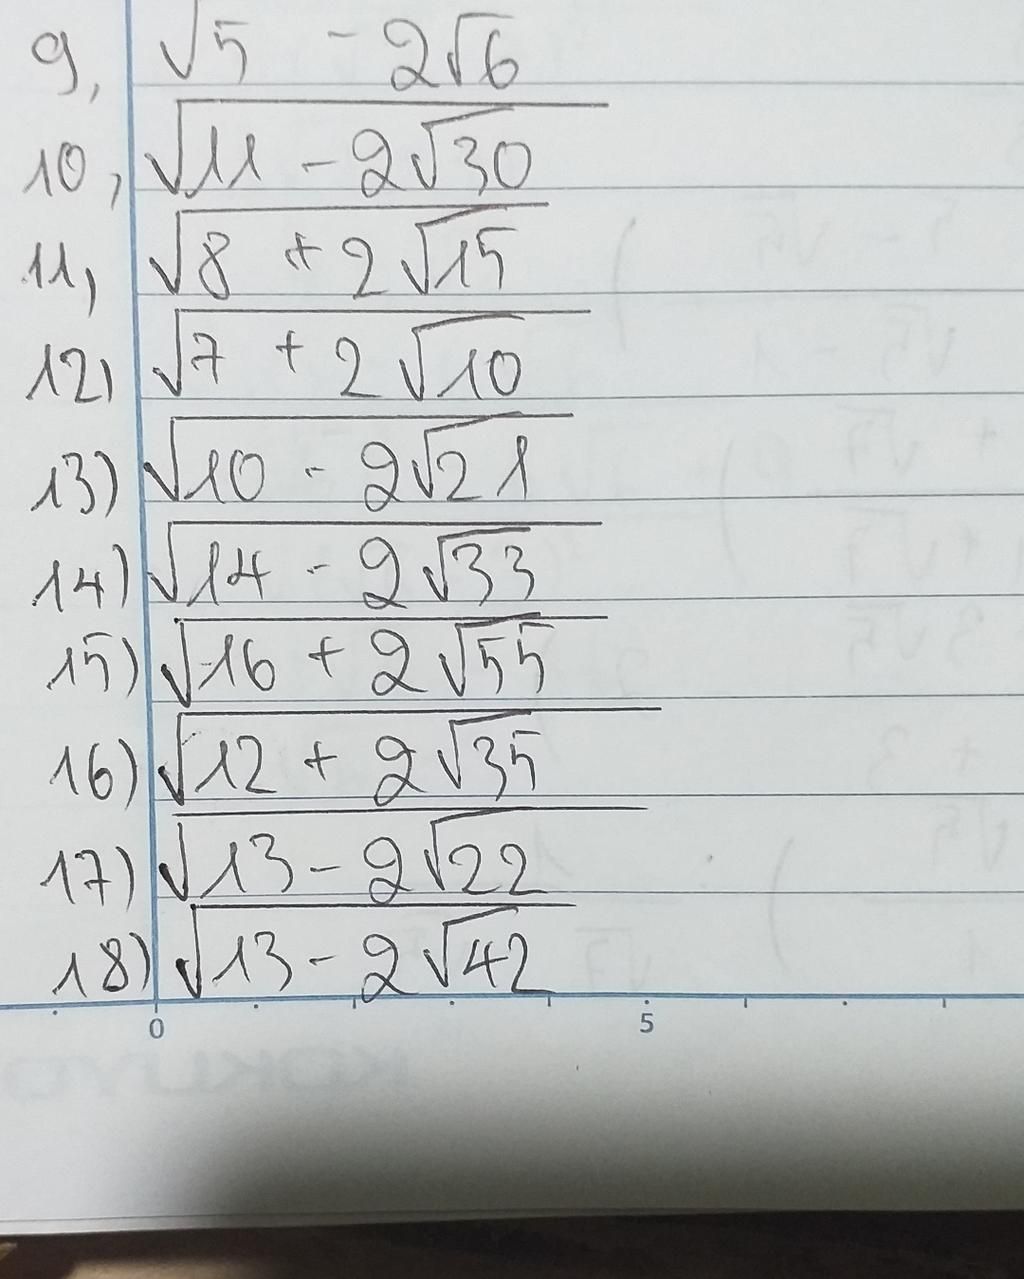 9, √5 - 2√6
10, √11 - 2√30
11, √8 + 2√15
12, √7 + 2√10
13) √10 - 2√21
14) √14 - 2√33
15) √16 + 2√55
16) √12 + 2√35
17) √13 - 2√22
18) √13 - 2√42
0 5